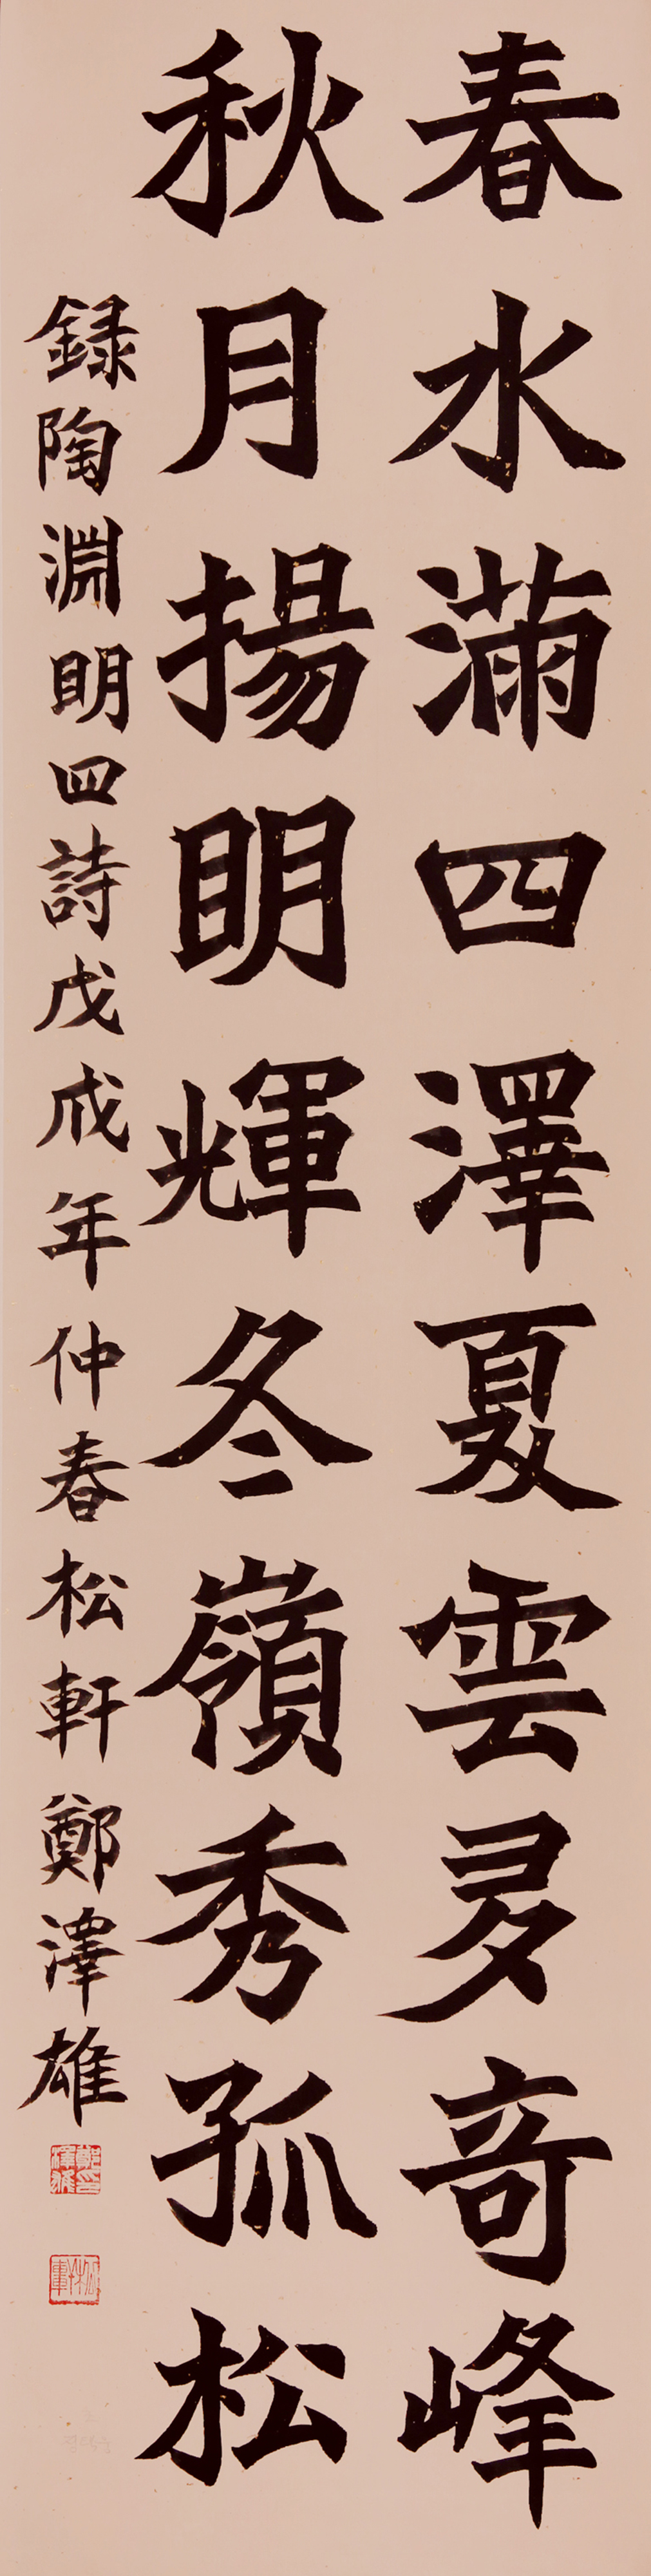 春水滿四澤夏雲多奇峰
秋月揚明輝冬嶺秀孤松
録陶淵明四詩戊戌年仲春松軒鄭澤雄
鄭澤雄印
松軒